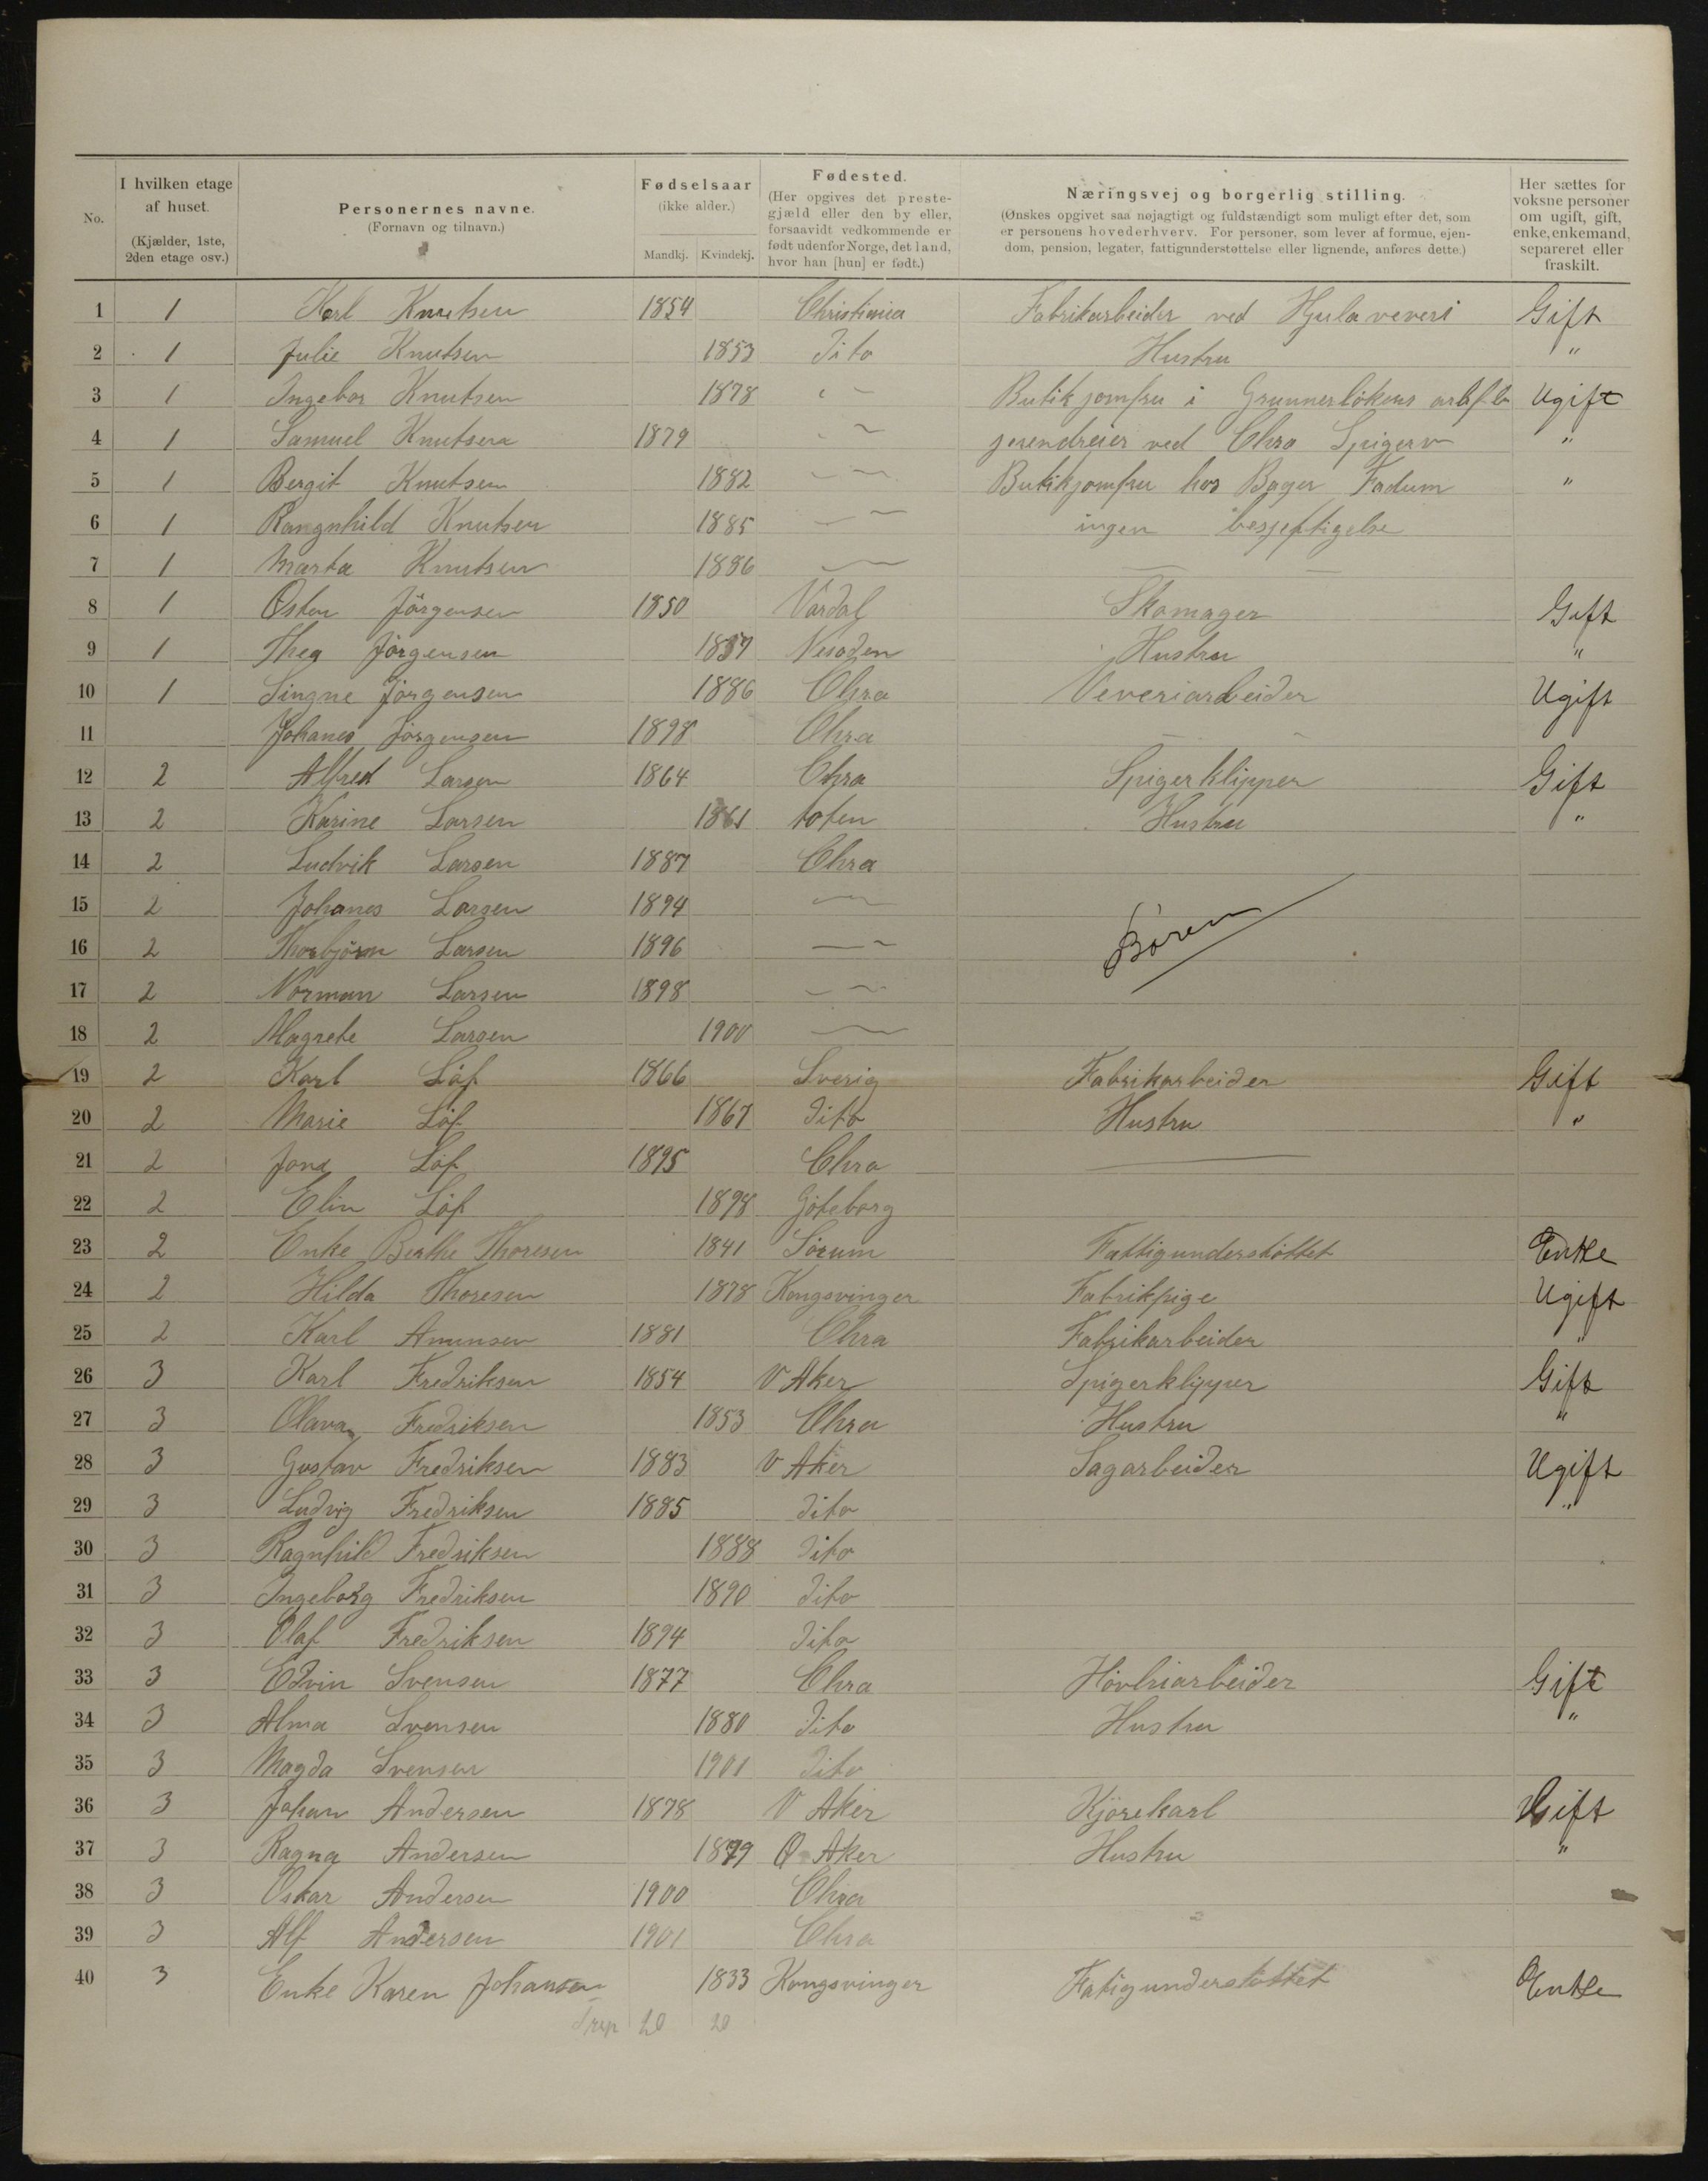 No.
I hvilken etage af huset.
(Kjælder, 1ste, 2den etage osv.)
Personernes navne.
(Fornavn og tilnavn.)
Fødselsaar
(ikke alder.)
Mandkj. Kvindekj.
Fødested.
(Her opgives det prestegjæld eller den by eller, forsaavidt vedkommende er født udenfor Norge, det land, hvor han [hun] er født.)
Næringsvej og borgerlig stilling.
(Ønskes opgivet saa nøjagtigt og fuldstændigt som muligt efter det, som er personens hovederhverv. For personer, som lever af formue, ejendom, pension, legater, fattigunderstøttelse eller lignende, anføres dette.)
Her sættes for voksne personer om ugift, gift, enke, enkemand, separeret eller fraskilt.
1 1 Karl Knutsen 1854 Christiania Fabrikarbeider ved Hjula veveri Gift
2 1 Julie Knutsen 1853 Dito Hustru "
3 1 Ingebor Knutsen 1878 " — Butikjomfru i Grunnerløkens Ugift
4 1 Samuel Knutsen 1879 " — jerendreier ved Chra Spigerv "
5 1 Bergit Knutsen 1882 — Butikjomfru hos Bager Fadum "
6 1 Rangnhild Knutsen 1885 — ingen besjeftigelse
7 1 Marta Knutsen 1886 — — —
8 1 Osten Jörgensen 1850 Vardal Skomager Gift
9 1 Thea Jörgensen 1857 Nesoden Hustru "
10 1 Singne Jörgensen 1886 Chra Veveriarbeider Ugift
11 Johanes Jörgensen 1898 Chra — —
12 2 Alfred Larsen 1864 Chra Spigerklipper Gift
13 2 Karine Larsen 1861 toten Hustru "
14 2 Ludvik Larsen 1887 Chra
15 2 Johanes Larsen 1894 —
16 2 Thorbjörn Larsen 1896 — Børen
17 2 Norman Larsen 1898 —
18 2 Magrete Larsen 1900 —
19 2 Karl Löf 1866 Sverig Fabrikarbeider Gift
20 2 Marie Löf 1867 Dito Hustru "
21 2 Jona Löf 1895 Chra —
22 2 Elin Löf 1898 Göteborg
23 2 Enke Berthe Thoresen 1841 Sörum Fattigunderstöttet Enke
24 2 Hilda Thoresen 1878 Kongsvinger Fabrikpige Ugift
25 2 Karl Amunsen 1881 Chra Fabrikarbeider "
26 3 Karl Fredriksen 1854 V Aker Spigerklipper Gift
27 3 Olava Fredriksen 1853 Chra Hustru "
28 3 Gustav Fredriksen 1883 V Aker Sagarbeider Ugift
29 3 Ludvig Fredriksen 1885 Dito "
30 3 Ragnhild Fredriksen 1888 Dito
31 3 Ingeborg Fredriksen 1890 Dito
32 3 Olaf Fredriksen 1894 Dito
33 3 Edvin Svensen 1877 Chra Hövlriarbeider Gift
34 3 Alma Svensen 1880 Dito Hustru "
35 3 Magda Svensen 1901 Dito
36 3 Johan Andersen 1878 V Aker Kjörekarl Gift
37 3 Ragna Andersen 1879 Ø Aker Hustru "
38 3 Oskar Andersen 1900 Chra
39 3 Alf Andersen 1901 Chra
40 3 Enke Karen Johansen 1833 Kongsvinger Fatigunderstöttet Enke
20 20